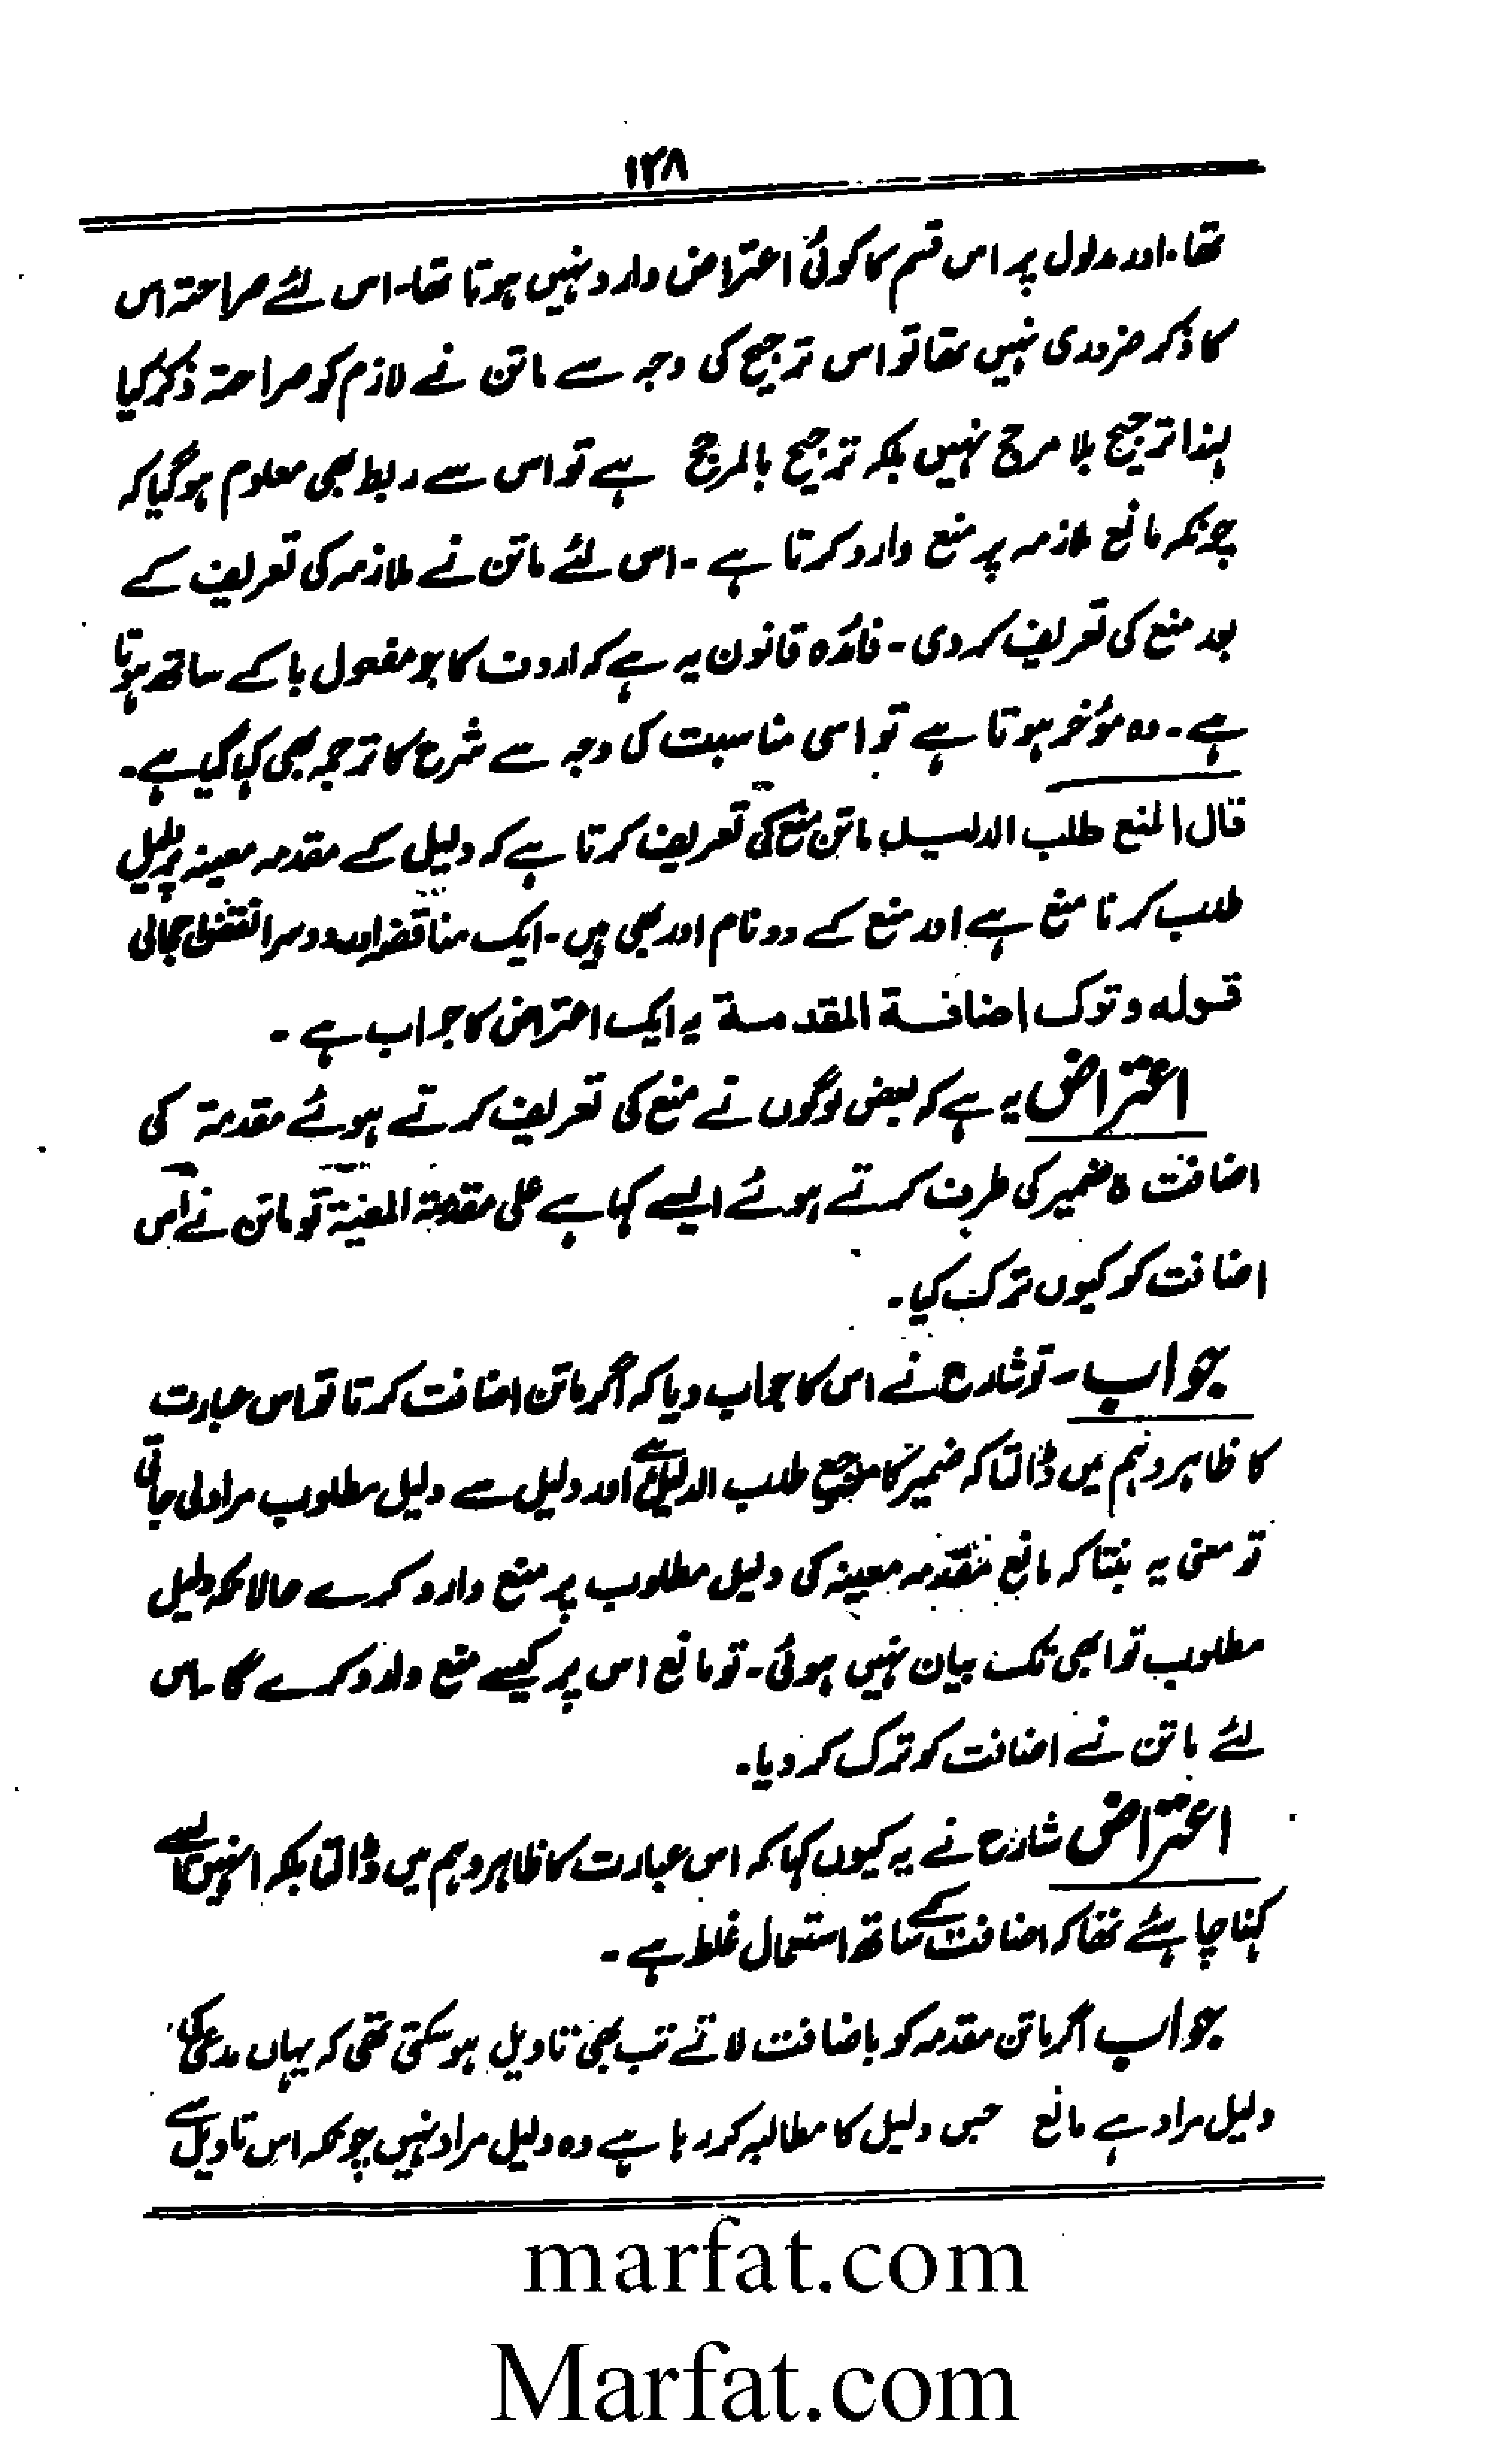 ۱۲۸
تھا۔ اور مدلول پر اس قسم کا کوئی اعتراض وارد نہیں ہوتا تھا۔ اس لئے صراحۃ اس
کا ذکر ضروری نہیں تھا تو اس ترجیح کی وجہ سے ماتن نے لازم کو صراحۃ ذکر کیا
لہذا ترجیح بلا مرجح نہیں بلکہ ترجیح بالمرجح ہے تو اس سے ربط بھی معلوم ہوگیا کہ
چونکہ مانع ملازمہ پر منع وارد کرتا ہے ۔ اس لئے ماتن نے ملازمہ کی تعریف کے
بعد منع کی تعریف کر دی ۔ فائدہ قانون یہ ہے کہ اردف کا جو مفعول با کے ساتھ ہوتا
ہے ۔ وہ مؤخر ہوتا ہے تو اسی مناسبت کی وجہ سے شرح کا ترجمہ بھی کہا گیا ہے ۔
قال المنع طلب الدلیل ماتن منع کی تعریف کرتا ہے کہ دلیل کے مقدمہ معینہ پر دلیل
طلب کرنا منع ہے اور منع کے دو نام اور بھی ہیں ۔ ایک مناقضہ اور دوسرا نقض اجمالی
قوله وترک اضافة المقدمة یہ ایک اعتراض کا جواب ہے ۔
اعتراض یہ ہے کہ بعض لوگوں نے منع کی تعریف کرتے ہوئے مقدمة کی
اضافت ہ ضمیر کی طرف کرتے ہوئے ایسے کہا ہے علی مقدمة المعینة تو ماتن نے اس
اضافت کو کیوں ترک کیا ۔
جواب ۔ تو شارح نے اس کا جواب دیا کہ اگر ماتن اضافت کرتا تو اس عبارت
کا ظاہر وہم میں ڈالتا کہ ضمیر کا مرجع طلب الدلیل ہے اور دلیل سے دلیل مطلوب مراد لی جاتی
تو معنی یہ بنتا کہ مانع مقدمہ معینہ کی دلیل مطلوب پر منع وارد کرے حالانکہ دلیل
مطلوب تو ابھی تک بیان نہیں ہوئی ۔ تو مانع اس پر کیسے منع وارد کرے گا ۔ اس
لئے ماتن نے اضافت کو ترک کر دیا ۔
اعتراض شارح نے یہ کیوں کہا کہ اس عبارت کا ظاہر وہم میں ڈالتا بلکہ انہیں ایسے
کہنا چاہئے تھا کہ اضافت کے ساتھ استعمال غلط ہے ۔
جواب اگر ماتن مقدمہ کو باضافت لاتے تب بھی تاویل ہو سکتی تھی کہ یہاں مدعی کی
دلیل مراد ہے مانع جس دلیل کا مطالبہ کر رہا ہے وہ دلیل مراد نہیں چونکہ اس تاویل سے
marfat.com
Marfat.com